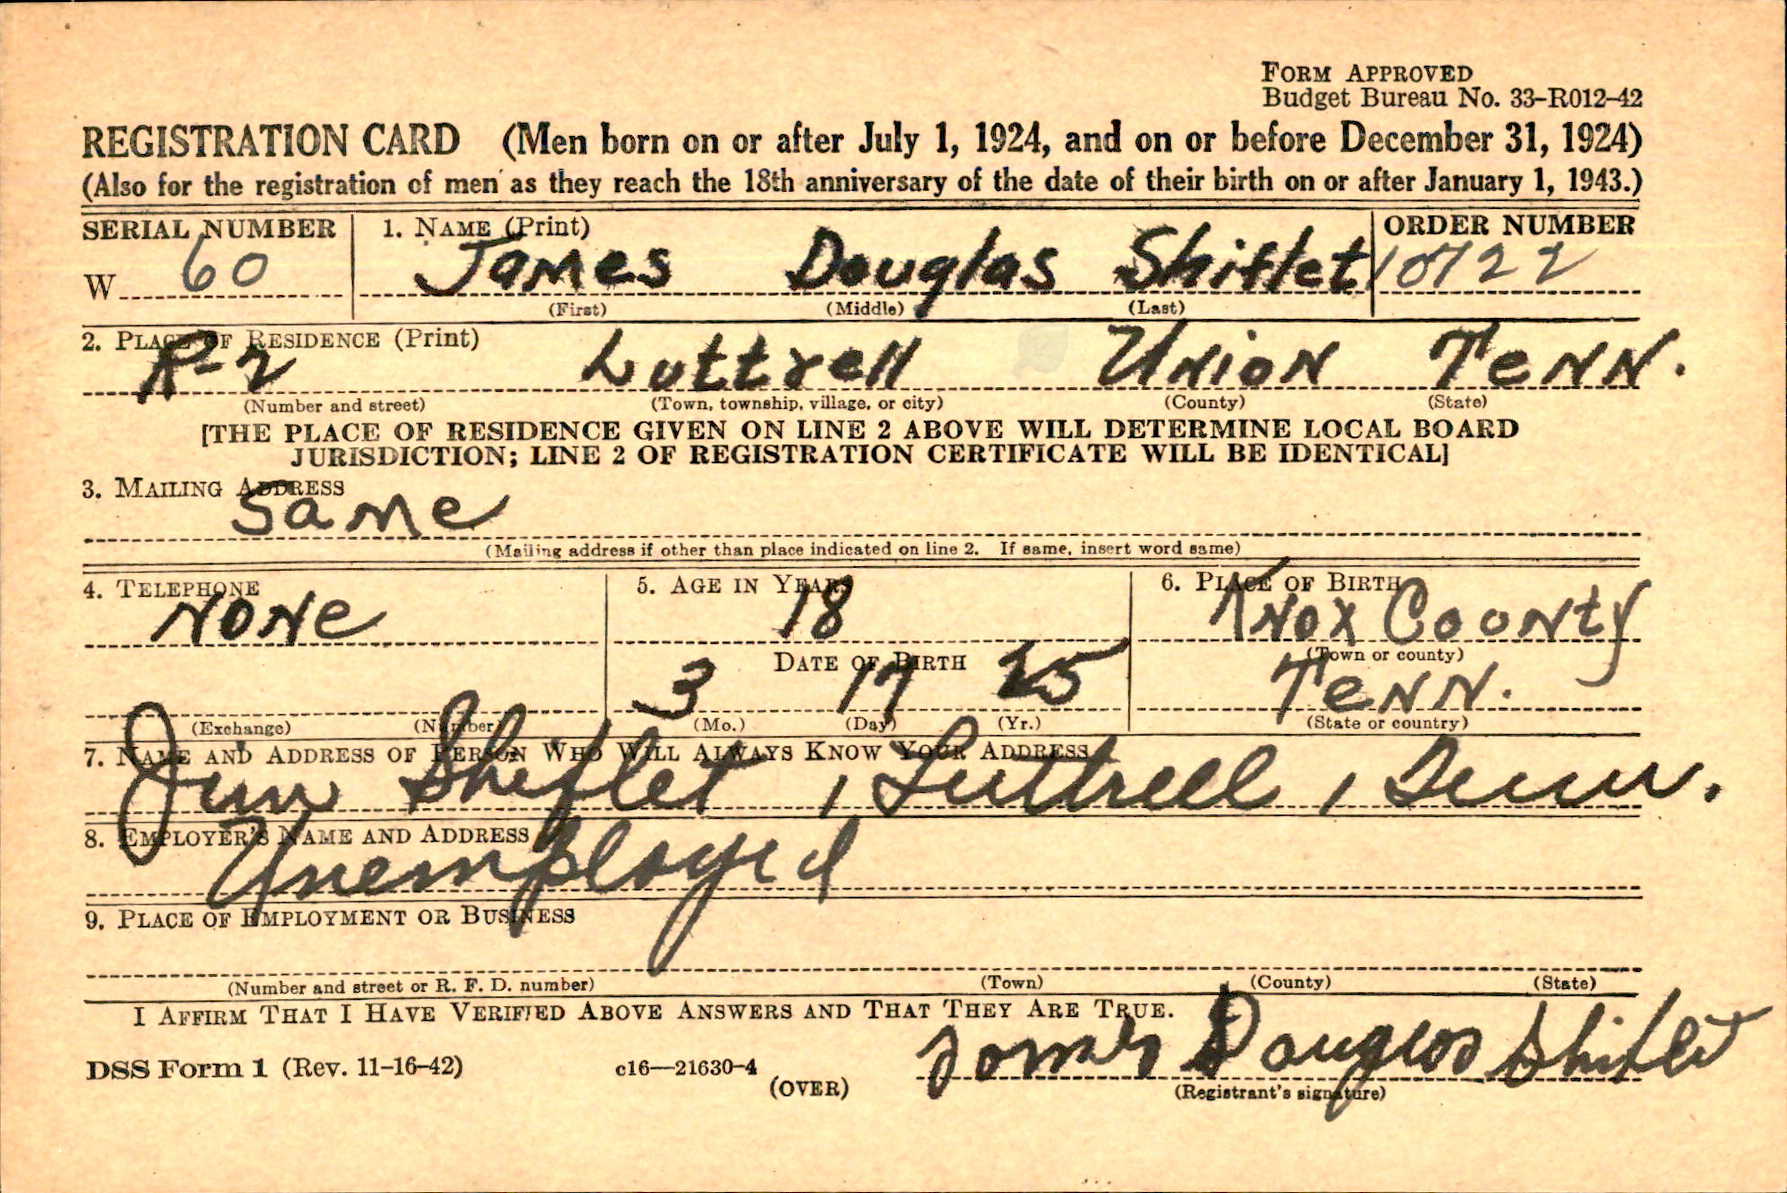 FORM APPROVED
Budget Bureau No. 33-R012-42
REGISTRATION CARD (Men born on or after July 1, 1924, and on or before December 31, 1924)
(Also for the registration of men as they reach the 18th anniversary of the date of their birth on or after January 1, 1943.)
SERIAL NUMBER 1. NAME (Print) ORDER NUMBER
W 60 James Douglas Shiflet 10722
(First) (Middle) (Last)
2. PLACE OF RESIDENCE (Print)
R-2 Luttrell Union Tenn.
(Number and street) (Town, township, village, or city) (County) (State)
[THE PLACE OF RESIDENCE GIVEN ON LINE 2 ABOVE WILL DETERMINE LOCAL BOARD
JURISDICTION; LINE 2 OF REGISTRATION CERTIFICATE WILL BE IDENTICAL]
3. MAILING ADDRESS
Same
(Mailing address if other than place indicated on line 2. If same, insert word same)
4. TELEPHONE 5. AGE IN YEARS 6. PLACE OF BIRTH
None 18 Knox County
DATE OF BIRTH (Town or county)
3 17 25 Tenn.
(Exchange) (Number) (Mo.) (Day) (Yr.) (State or country)
7. NAME AND ADDRESS OF PERSON WHO WILL ALWAYS KNOW YOUR ADDRESS
Jim Shiflet, Luttrell, Tenn.
8. EMPLOYER'S NAME AND ADDRESS
Unemployed
9. PLACE OF EMPLOYMENT OR BUSINESS
(Number and street or R. F. D. number) (Town) (County) (State)
I AFFIRM THAT I HAVE VERIFIED ABOVE ANSWERS AND THAT THEY ARE TRUE.
DSS Form 1 (Rev. 11-16-42) c16—21630-4 (OVER) James Douglas Shiflet
(Registrant's signature)